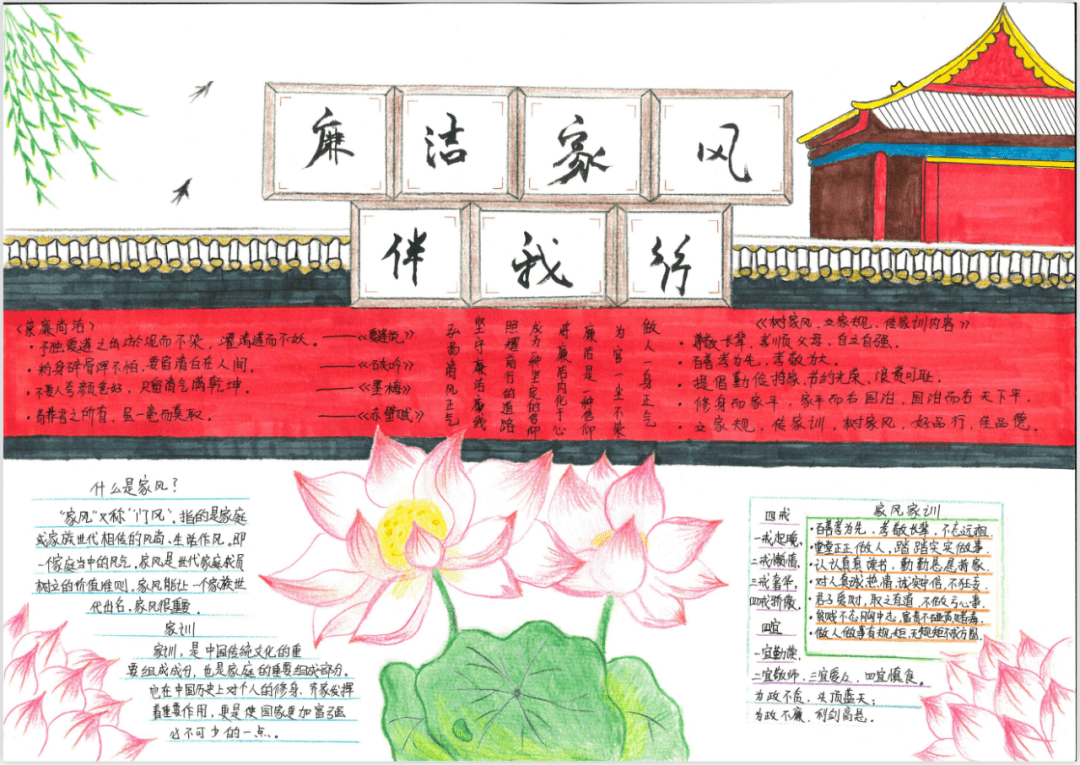 廉洁家风
伴我行
《崇廉尚洁》
·予独爱莲之出淤泥而不染，濯清涟而不妖。——《爱莲说》
·粉身碎骨浑不怕，要留清白在人间。——《石灰吟》
·不要人夸颜色好，只留清气满乾坤。——《墨梅》
·苟非吾之所有，虽一毫而莫取。——《赤壁赋》
做人一身正气
为官一尘不染
廉洁是一种信仰
将廉洁内化于心
成为一种坚定的信仰
照耀前行的道路
坚守廉洁底线
弘扬清风正气
《树家风、立家规、传家训内容》
·尊敬长辈，孝顺父母，自立自强。
·百善孝为先，孝敬为大。
·提倡勤俭持家，节约光荣，浪费可耻。
·修身而家平，家平而后国治，国治而后天下平。
·立家规，传家训，树家风，好品行，佳品德。
什么是家风？
“家风”又称“门风”，指的是家庭
或家族世代相传的风尚、生活作风，即
一个家庭当中的风气，家风是世代家庭成员
树立的价值准则。家风能让一个家族世
代出名，家风很重要。
家训
家训，是中国传统文化的重
要组成成分，也是家庭的重要组成部分，
它在中国历史上对个人的修身、齐家发挥
着重要作用，更是使国家更加富强
必不可少的一点。
四戒
一戒起晚，
二戒懒惰，
三戒奢华，
四戒骄傲。
四宜
一宜勤读，
二宜敬师，三宜爱众，四宜慎食。
为政不贪，头顶蓝天；
为政不廉，利剑高悬。
家风家训
·百善孝为先，孝敬长辈，不忘远祖。
·堂堂正正做人，踏踏实实做事。
·认认真真读书，勤勤恳恳持家。
·对人真诚热情，诚实守信，不狂妄
·君子爱财，取之有道，不做亏心事。
·贫贱不忘胸中志，富贵不碰黄赌毒。
·做人做事有规矩，无规矩不成方圆。